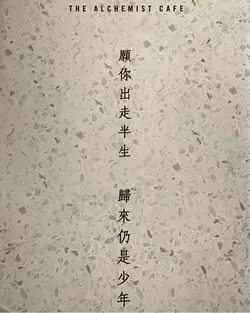 THE ALCHEMIST CAFE
願你出走半生
歸來仍是少年